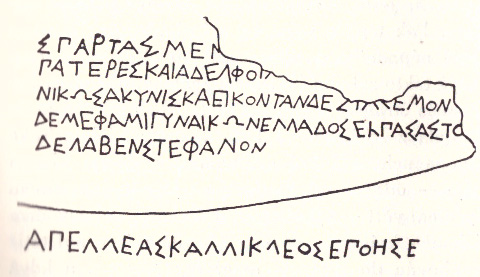 ΣΠΑΡΤΑΣΜΕΝ
ΠΑΤΕΡΕΣΚΑΙΑΔΕΛΦΟΙ
ΝΙΚΩΣΑΚΥΝΙΣΚΑΕΙΚΟΝΤΑΝΔΕΣΤΑΣΕΜΟΝ
ΔΕΜΕΦΑΜΙΓΥΝΑΙΚΩΝΕΛΛΑΔΟΣΕΚΠΑΣΑΣΤΟ
ΔΕΛΑΒΕΝΣΤΕΦΑΝΟΝ
ΑΠΕΛΛΕΑΣΚΑΛΛΙΚΛΕΟΣΕΠΟΗΣΕ